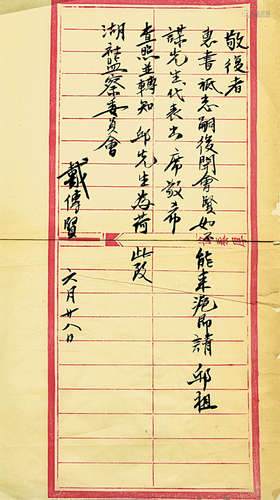 敬復者
惠書祗悉嗣後開會賢如不能來滬即請 邱祖
謀先生代表出席敬希
查照並轉知 邱先生為荷 此致
湖社監察委員會
戴傳賢
六月廿八日